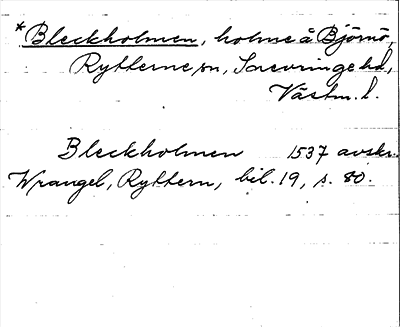 *Bleckholmen, holme å Björnö,
Rytterne sn, Snevringe hd,
Västm. l.
Bleckholmen 1537 avskr.
Wrangel, Ryttern, bil. 19, s. 80.